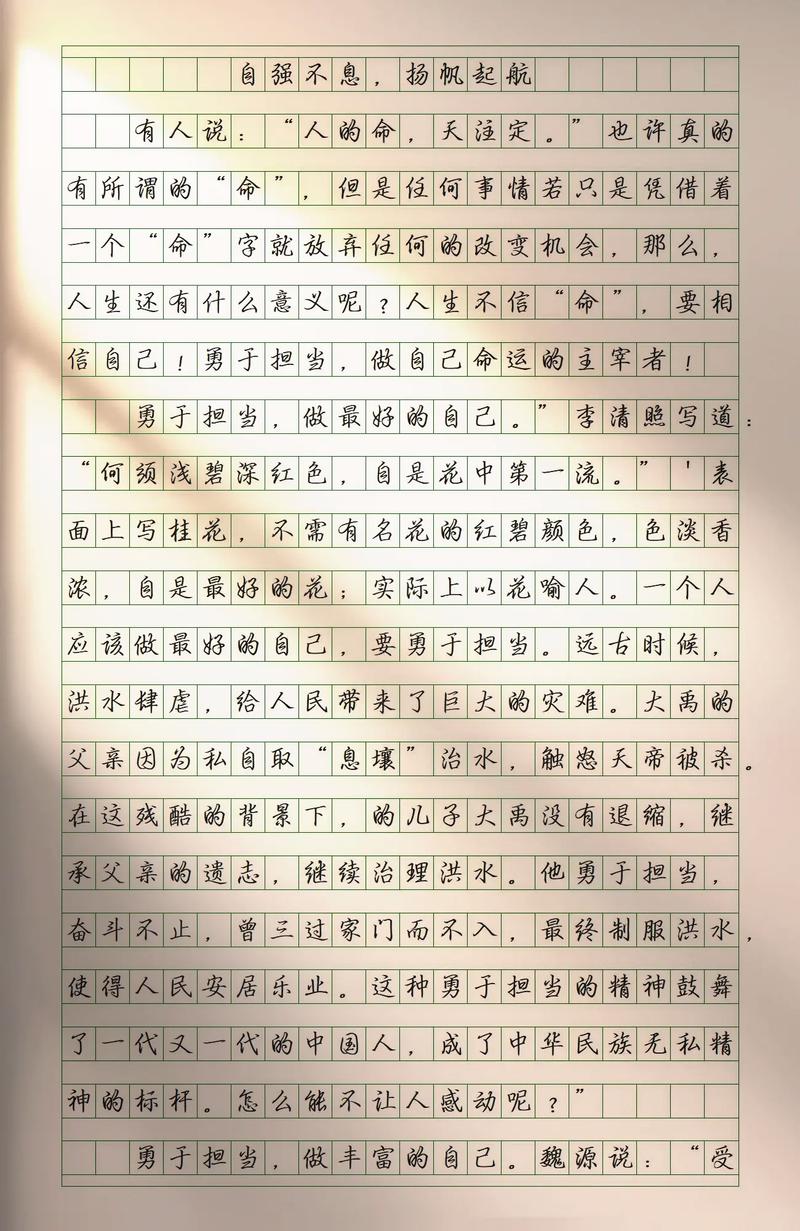 自强不息，扬帆起航
有人说：“人的命，天注定。”也许真的
有所谓的“命”，但是任何事情若只是凭借着
一个“命”字就放弃任何的改变机会，那么，
人生还有什么意义呢？人生不信“命”，要相
信自己！勇于担当，做自己命运的主宰者！
勇于担当，做最好的自己。”李清照写道：
“何须浅碧深红色，自是花中第一流。”'表
面上写桂花，不需有名花的红碧颜色，色淡香
浓，自是最好的花；实际上以花喻人。一个人
应该做最好的自己，要勇于担当。远古时候，
洪水肆虐，给人民带来了巨大的灾难。大禹的
父亲因为私自取“息壤”治水，触怒天帝被杀。
在这残酷的背景下，的儿子大禹没有退缩，继
承父亲的遗志，继续治理洪水。他勇于担当，
奋斗不止，曾三过家门而不入，最终制服洪水，
使得人民安居乐业。这种勇于担当的精神鼓舞
了一代又一代的中国人，成了中华民族无私精
神的标杆。怎么能不让人感动呢？”
勇于担当，做丰富的自己。魏源说：“受